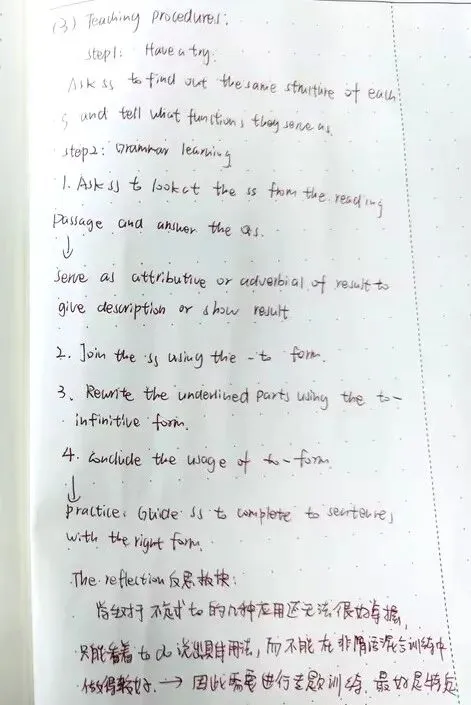 (3) Teaching procedures:
step1: Have a try.
Ask ss to find out the same struture of each
s and tell what functions they serve as.
step2: Grammar learning
1. Ask ss to look at the ss from the reading
passage and answer the Qs.
↓
serve as attributive or adverbial of result to
give description or show result
2. Join the ss using the -to form.
3. Rewrite the underlined parts using the to-
infinitive form.
4. Conclude the usage of to-form.
↓
practice: Guide ss to complete to sentences
with the right form.
The reflection 反思板块:
学生对于不定式to的几种应用还无法很好掌握,
只能看着to do说出具体用法,而不能在非谓语混合训练中
做得较好. → 因此需要进行专题训练,最好是